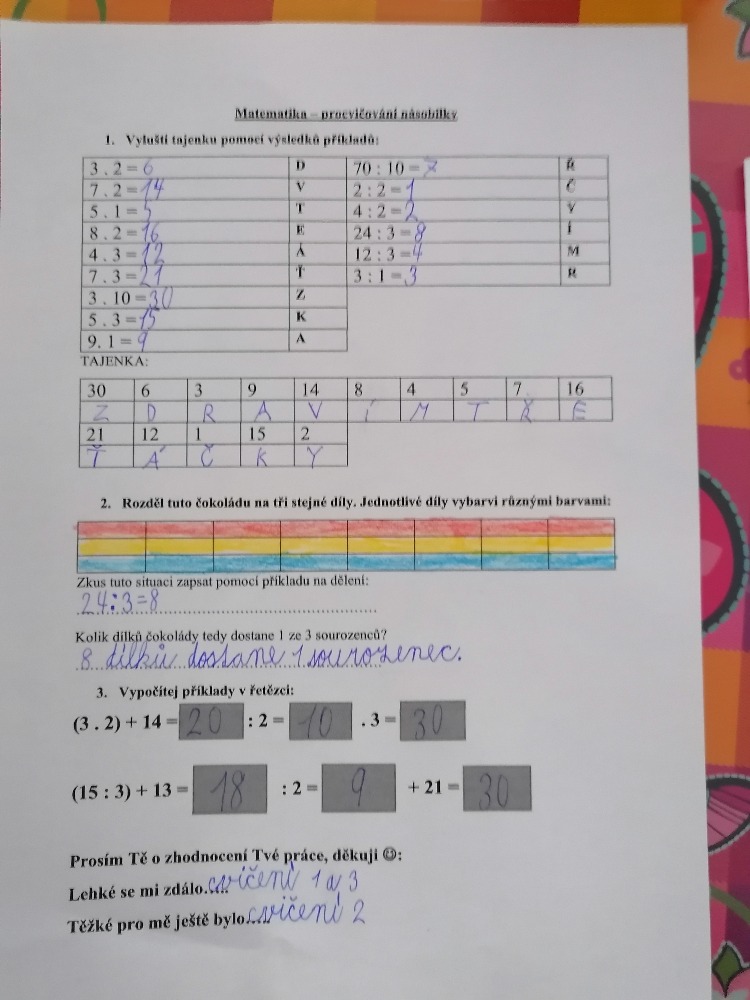 Matematika – procvičování násobilky
1. Vylušti tajenku pomocí výsledků příkladů:
3 . 2 = 6 D 70 : 10 = 7 Ř
7 . 2 = 14 V 2 : 2 = 1 Č
5 . 1 = 5 T 4 : 2 = 2 Y
8 . 2 = 16 E 24 : 3 = 8 Í
4 . 3 = 12 Á 12 : 3 = 4 M
7 . 3 = 21 Ť 3 : 1 = 3 R
3 . 10 = 30 Z
5 . 3 = 15 K
9. 1 = 9 A
TAJENKA:
30 6 3 9 14 8 4 5 7 16
Z D R A V Í M T Ř E
21 12 1 15 2
Ť Á Č K Y
2. Rozděl tuto čokoládu na tři stejné díly. Jednotlivé díly vybarvi různými barvami:
Zkus tuto situaci zapsat pomocí příkladu na dělení:
24:3=8
Kolik dílků čokolády tedy dostane 1 ze 3 sourozenců?
8 dílků dostane 1 sourozenec.
3. Vypočítej příklady v řetězci:
(3 . 2) + 14 = 20 : 2 = 10 . 3 = 30
(15 : 3) + 13 = 18 : 2 = 9 + 21 = 30
Prosím Tě o zhodnocení Tvé práce, děkuji ☺:
Lehké se mi zdálo..... cvičení 1 a 3
Těžké pro mě ještě bylo..... cvičení 2